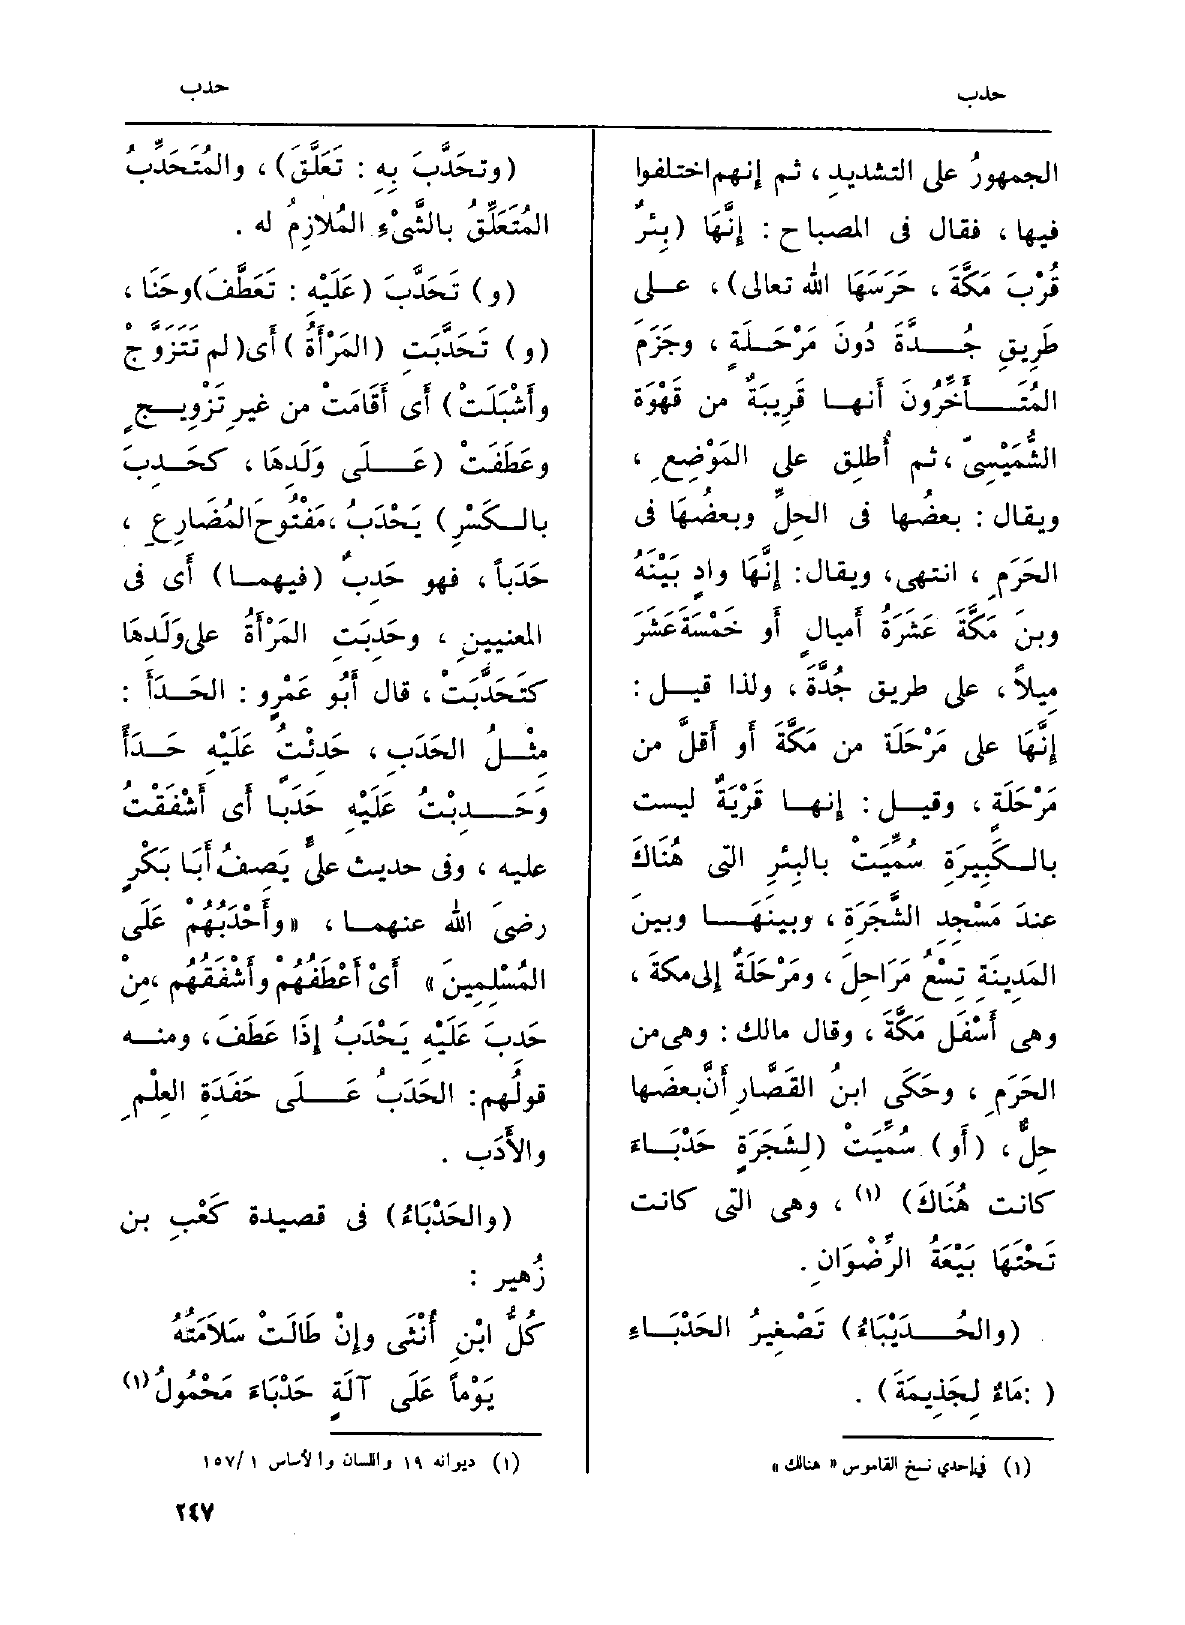 حدب
حدب
الجمهورُ على التشديدِ ، ثم إنهم اختلفوا
فيها ، فقال فى المصباح : إِنَّهَا (بِئْرٌ
قُرْبَ مَكَّةَ ، حَرَسَهَا الله تعالى) ، عـلى
طَرِيقِ جُـــدَّةَ دُونَ مَرْحَـلَةٍ ، وجَزَمَ
المُتَـــأَخِّرُونَ أَنهـا قَرِيبَةٌ من قَهْوَة
الشُّمَيْسِىّ ، ثم أُطلِق على المَوْضِع ،
ويقال : بعضُها فى الحِلِّ وبعضُهَا فى
الحَرَمِ ، انتهى ، ويقال : إِنَّهَا وادٍ بَيْنَهُ
وبينَ مَكَّةَ عَشَرَةُ أَميالٍ أَو خَمْسَةَ عَشَرَ
مِيلاً ، على طريق جُدَّةَ ، ولذا قيـل :
إِنَّهَا على مَرْحَلَة من مَكَّةَ أَو أَقلَّ من
مَرْحَلَة ، وقيـل : إِنهـا قَرْيَةٌ ليست
بالـكَبِيرَةِ سُمِّيَتْ بالبِئرِ التى هُنَاكَ
عندَ مَسْجِدِ الشَّجَرَة ، وبينَهَـا وبينَ
المَدِينَةِ تِسْعُ مَرَاحِلَ ، ومَرْحَلَةٌ إلى مكةَ ،
وهى أَسْفَل مَكَّةَ ، وقال مالك : وهى من
الحَرَمِ ، وحَكَى ابنُ القَصَّارِ أَنَّ بعضَها
حِلٌّ ، (أَو) سُمِّيَتْ (لِشَجَرَةٍ حَدْبَـاءَ
كانت هُنَاكَ) (١) ، وهى التى كانت
تَحْتَهَا بَيْعَةُ الرِّضْوَانِ .
(والحُـــدَيْبَاءُ) تَصْغِيرُ الحَدْبَـاءِ
( : مَاءٌ لِجَذِيمَةَ ) .
(١) في إحدي نسخ القاموس « هنالك »
(وتحَدَّبَ بِهِ : تَعَلَّقَ) ، والمُتَحَدِّبُ
المُتَعَلِّقُ بالشَّىْءِ المُلازِمُ له .
(و) تَحَدَّبَ (عَلَيْهِ : تَعَطَّفَ) وحَنَا ،
(و) تَحَدَّبَتِ (المَرْأَةُ) أَى (لم تَتَزَوَّجْ
وأَشْبَلَتْ) أَى أَقَامَتْ من غيرِ تَزْوِيـجٍ
وعَطَفَتْ (عَـــلَى وَلَدِهَا ، كحَـدِبَ
بالـكَسْرِ) يَحْدَبُ ، مَفْتُوحَ المُضَارِعِ ،
حَدَباً ، فهو حَدِبٌ (فيهمـا) أَى فى
المعنيينِ ، وحَدِبَتِ المَرْأَةُ على وَلَدِهَا
كتَحَدَّبَتْ ، قال أَبُو عَمْرٍو : الحَـدَأُ :
مثْـلُ الحَدَبِ ، حَدِئْتُ عَلَيْهِ حَـدَأً
وَحَـــدِبْتُ عَلَيْهِ حَدَبًا أَى أَشْفَقْتُ
عليه ، وفى حديث علىٍّ يَصِفُ أَبَا بَكْرٍ
رضىَ الله عنهمـا ، « وأَحْدَبُهُمْ عَلَى
المُسْلِمِينَ » أَىْ أَعْطَفُهُمْ وأَشْفَقُهُم ، مِنْ
حَدِبَ عَلَيْهِ يَحْدَبُ إِذَا عَطَفَ ، ومنـه
قولُهم : الحَدَبُ عَـــلَى حَفَدَةِ العِلْمِ
والأَدَب .
(والحَدْبَاءُ) فى قصيدة كَعْبِ بن
زُهيرٍ :
كُلُّ ابْنِ أُنْثَى وإِنْ طَالَتْ سَلاَمَتُهُ
يَوْماً عَلَى آلَةٍ حَدْبَاءَ مَحْمُولُ (١)
(١) ديوانه ١٩ واللسان والأساس ١/١٥٧
٢٤٧